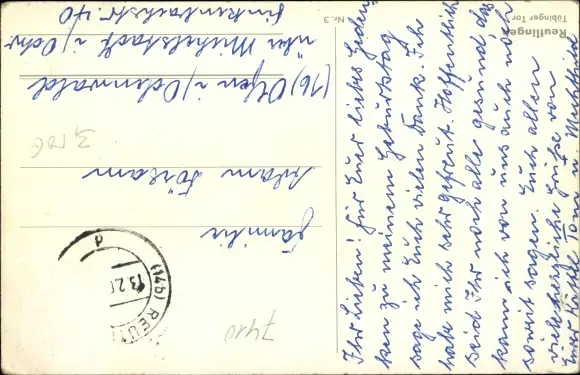 Reutlingen
Tübinger Tor
Nr. 3
Ihr Lieben! Für Euer liebes Geden
ken zu meinem Geburtstag
sage ich Euch vielen Dank. Ich
habe mich sehr gefreut. Hoffentlich
seid Ihr noch alle gesund, das
kann ich von uns auch noch
soweit sagen. Euch allen
viele herzliche Grüße von
Eurer Tom u.
Familie
Adam Törsam
(16) Olfen i/Odenwald
über Michelstadt i/Odw.
Finkenbachstr. 40
(14b) REUT
13.2.
d
3,50€
7410